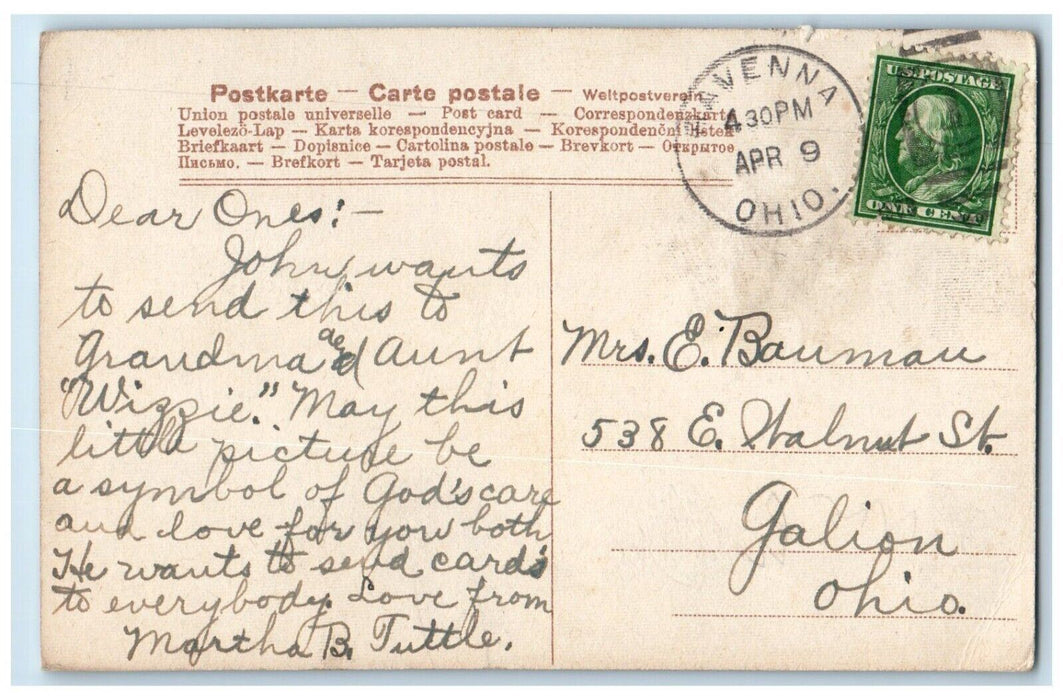 Postkarte — Carte postale — Weltpostverein
Union postale universelle — Post card — Correspondenzkarte
Levelező-Lap — Karta korespondencyjna — Korespondenční lístek
Briefkaart — Dopisnice — Cartolina postale — Brevkort — Открытое
Письмо. — Brefkort — Tarjeta postal.
RAVENNA
430PM
APR 9
OHIO.
U.S. POSTAGE
ONE CENT
Dear Ones:—
John wants
to send this to
Grandma and Aunt
"Wizzie." May this
little picture be
a symbol of God's care
and love for you both
He wants to send cards
to everybody. Love from
Martha B. Tuttle.
Mrs. E. Bauman
538 E. Walnut St.
Galion
Ohio.